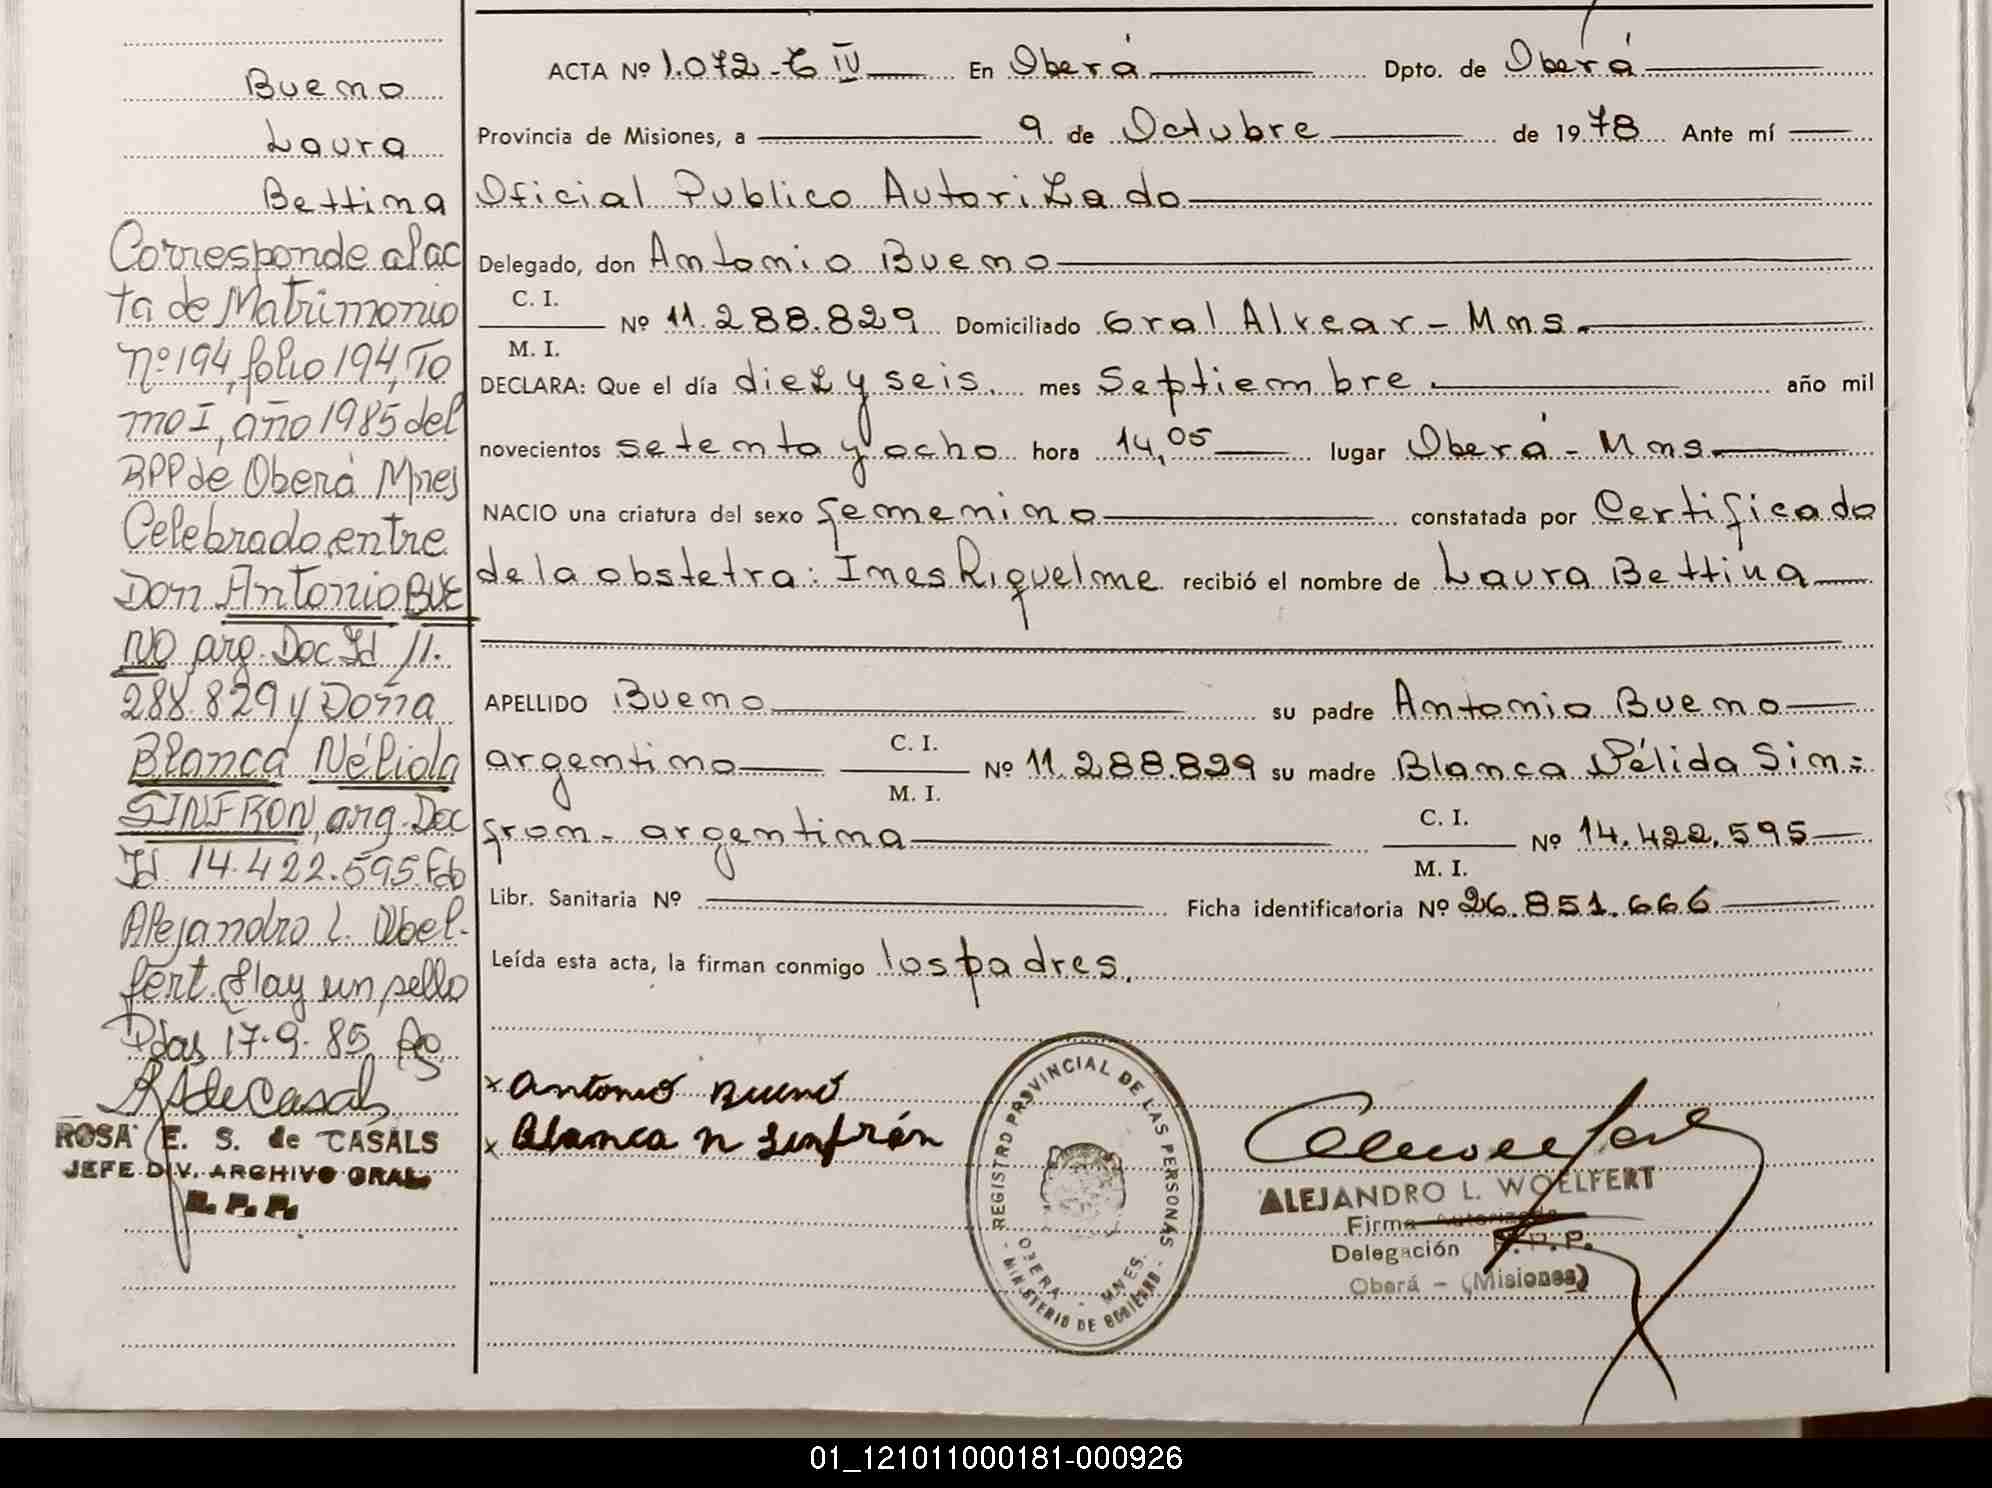 Bueno
Laura
Bettina
Corresponde al ac
ta de Matrimonio
nº 194, folio 194, To
mo I, año 1985 del
RPP de Oberá Mnes
Celebrado entre
Don Antonio BUE
NO arg. Doc Id 11.
288.829 y Doña
Blanca Nélida
SINFRON, arg. Doc
Id 14.422.595. Fdo
Alejandro L. Woel-
fert. Hay un sello
Pdas 17-9-85
ROSA E. S. de CASALS
JEFE DIV. ARCHIVO GRAL.
R. P. P.
ACTA Nº 1.072-T IV En Oberá Dpto. de Oberá
Provincia de Misiones, a 9 de Octubre de 1978 Ante mí
Oficial Publico Autorizado
Delegado, don Antonio Bueno
C. I.
M. I. Nº 11.288.829 Domiciliado Gral Alvear - Mns.
DECLARA: Que el día diez y seis. mes Septiembre. año mil
novecientos setenta y ocho hora 14,05 lugar Oberá - Mns
NACIO una criatura del sexo femenino constatada por Certificado
de la obstetra: Ines Riquelme recibió el nombre de Laura Bettina
APELLIDO Bueno su padre Antonio Bueno
argentino C. I. M. I. Nº 11.288.829 su madre Blanca Nélida Sin=
fron - argentina C. I. M. I. Nº 14.422.595
Libr. Sanitaria Nº Ficha identificatoria Nº 26.851.666
Leída esta acta, la firman conmigo los padres.
x Antonio Bueno
x Blanca N Sinfrón
REGISTRO PROVINCIAL DE LAS PERSONAS
OBERA - MNES.
- MINISTERIO DE GOBIERNO -
ALEJANDRO L. WOELFERT
Firma Autorizada
Delegación R.P.P.
Oberá - (Misiones)
01_121011000181-000926